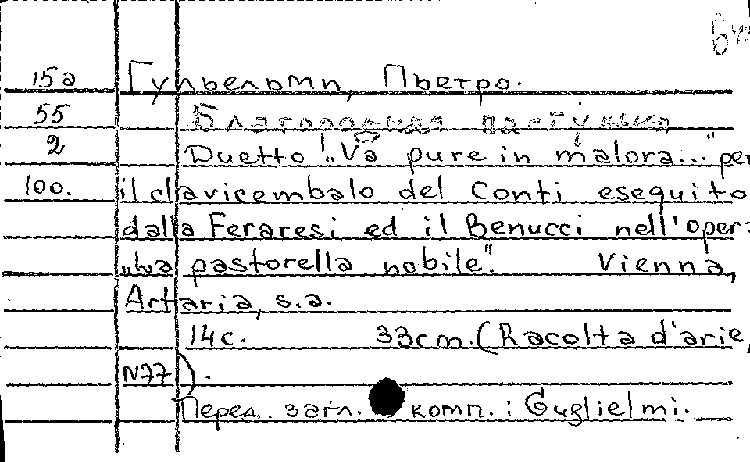 15а Гульельми, Пьетро.
55 Благородная пастушка
2 Duetto "Va pure in malora..." per
100. il clavicembalo del Conti eseguito
dalla Feraresi ed il Benucci nell'oper
"La pastorella nobile". Vienna,
Artaria, s.a.
14 с. 33cm. (Racolta d'arie,
N77).
Перед загл. комп.: Guglielmi.